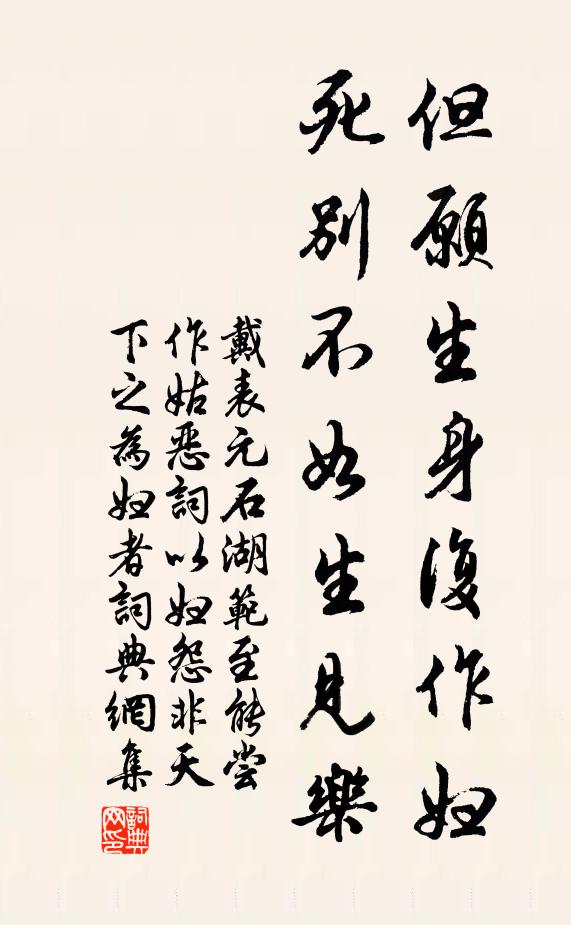 但願生身復作妇
死別不如生見樂
戴表元石湖範至能尝
作姑恶詞以妇怨非天
下之為妇者詞典網集
詞典
网印